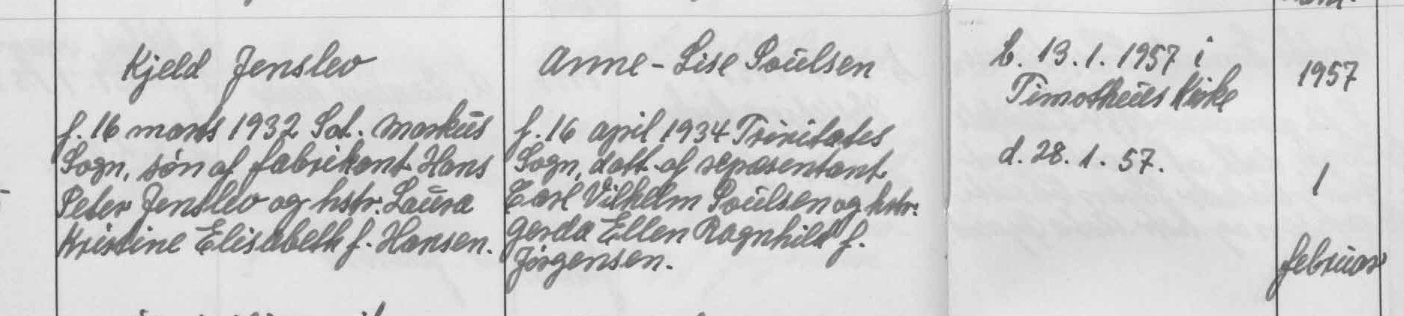 Kjeld Jenslev
f. 16 marts 1932 Sct. Markus
Sogn, søn af fabrikant Hans
Peter Jenslev og hstr. Laura
Kristine Elisabeth f. Hansen.
Anne-Lise Poulsen
f. 16 april 1934 Trinitatis
Sogn, datt. af repræsentant
Carl Vilhelm Poulsen og hstr.
Gerda Ellen Ragnhild f.
Jörgensen.
b. 13.1.1957 i
Timotheus Kirke
d. 28.1.57.
1957
1
februar